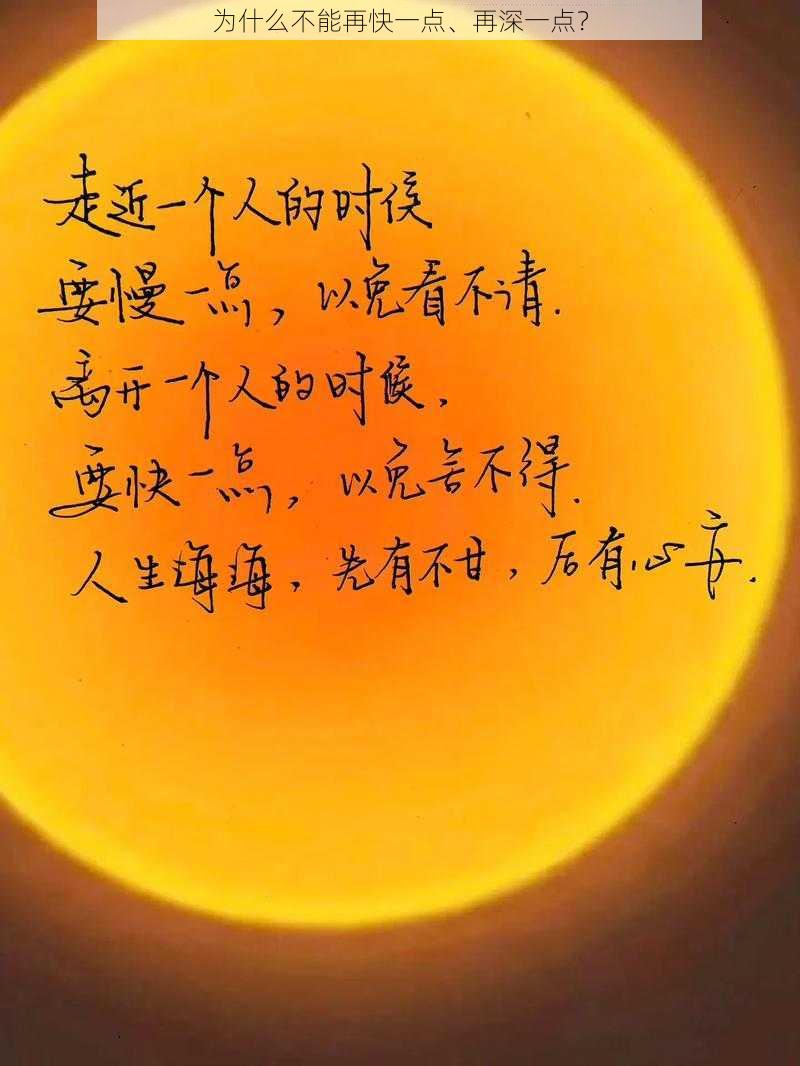 为什么不能再快一点、再深一点？
走近一个人的时候
要慢一点，以免看不清.
离开一个人的时候，
要快一点，以免舍不得.
人生海海，先有不甘，后有心安.